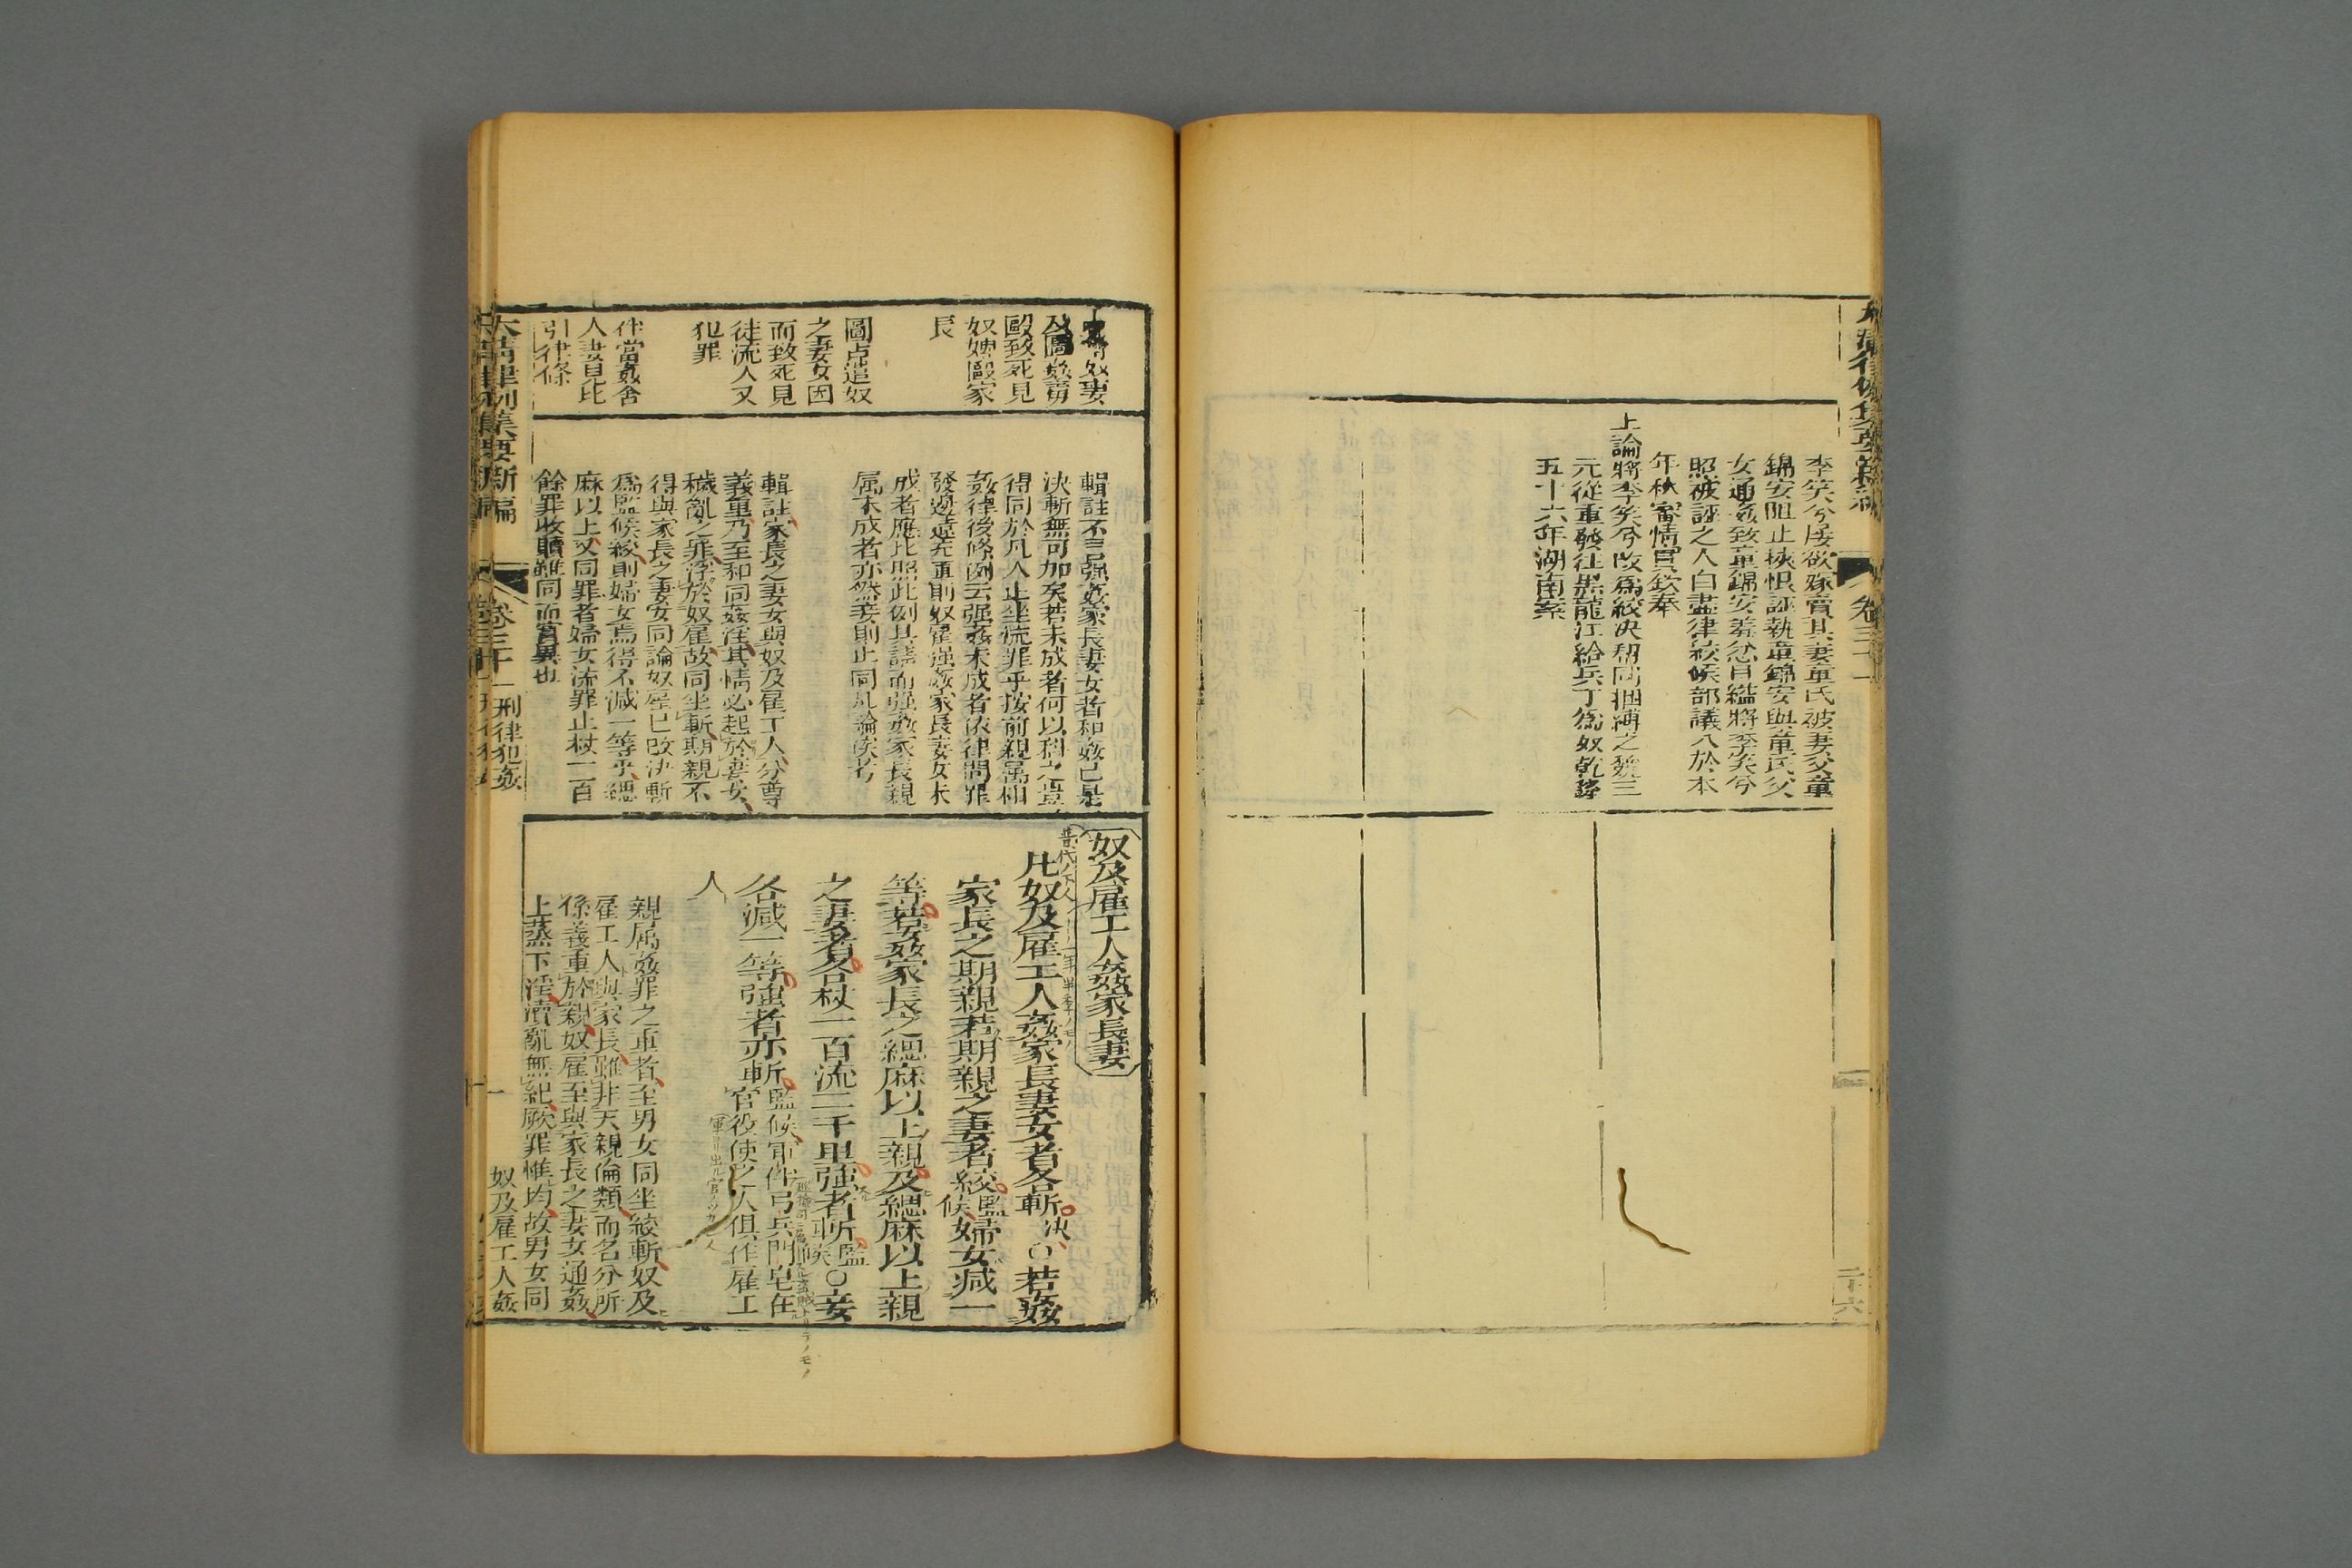 李笑兮屡欲嫁賣其妻童氏被妻父童
錦安阻止挾恨誣執童錦安與童氏父
女通姦致童錦安羞忿自縊將李笑兮
照被誣之人自盡律絞候部議入於本
年秋審情實欽奉
上諭將李笑兮改為絞決幫同捆縛之
元從重發往黑龍江給兵丁為奴乾隆
五十六年湖南案
二十六
奴妻
及圖姦
毆致死見
奴婢毆家
長
圖占遣奴
之妻女因
而致死見
徒流人又
犯罪
件當姦舍
人妻見比
引律條
輯註不言强姦家長妻女者和姦已是
決斬無可加矣若未成者何以科之豈
得同於凡人止坐流罪乎按前親属相
姦律後條例云强姦未成者依律問罪
發邊遠充軍則奴雇强姦家長妻女未
成者應比照此例其謀而强姦家長親
属未成者亦然妾則止同凡論
輯註家長之妻女與奴及雇工人分尊
義重乃至和同姦淫其情必起於妻女
穢亂之罪浮於奴雇故同坐斬期親不
得與家長之妻女同論奴雇已改決斬
為監候絞則婦女焉得不減一等乎緦
麻以上又同罪者婦女流罪止杖一百
餘罪收贖雖同而實異也
奴及雇工人姦家長妻
凡奴及雇工人姦家長妻女者各斬決〇若姦
家長之期親若期親之妻者絞監候婦女減一
等若姦家長之緦麻以上親及緦麻以上親
之妻者各杖一百流二千里强者斬監候〇妾
各減一等强者亦斬監候軍伴弓兵門皂在官役使之人俱作雇工
人
親属姦罪之重者至男女同坐絞斬奴及
雇工人與家長雖非天親倫類而名分所
係義重於親奴雇至與家長之妻女通姦
上蒸下淫瀆亂無紀厥罪惟均故男女同
大清律例集要新編
卷三十一 刑律犯姦
奴及雇工人姦